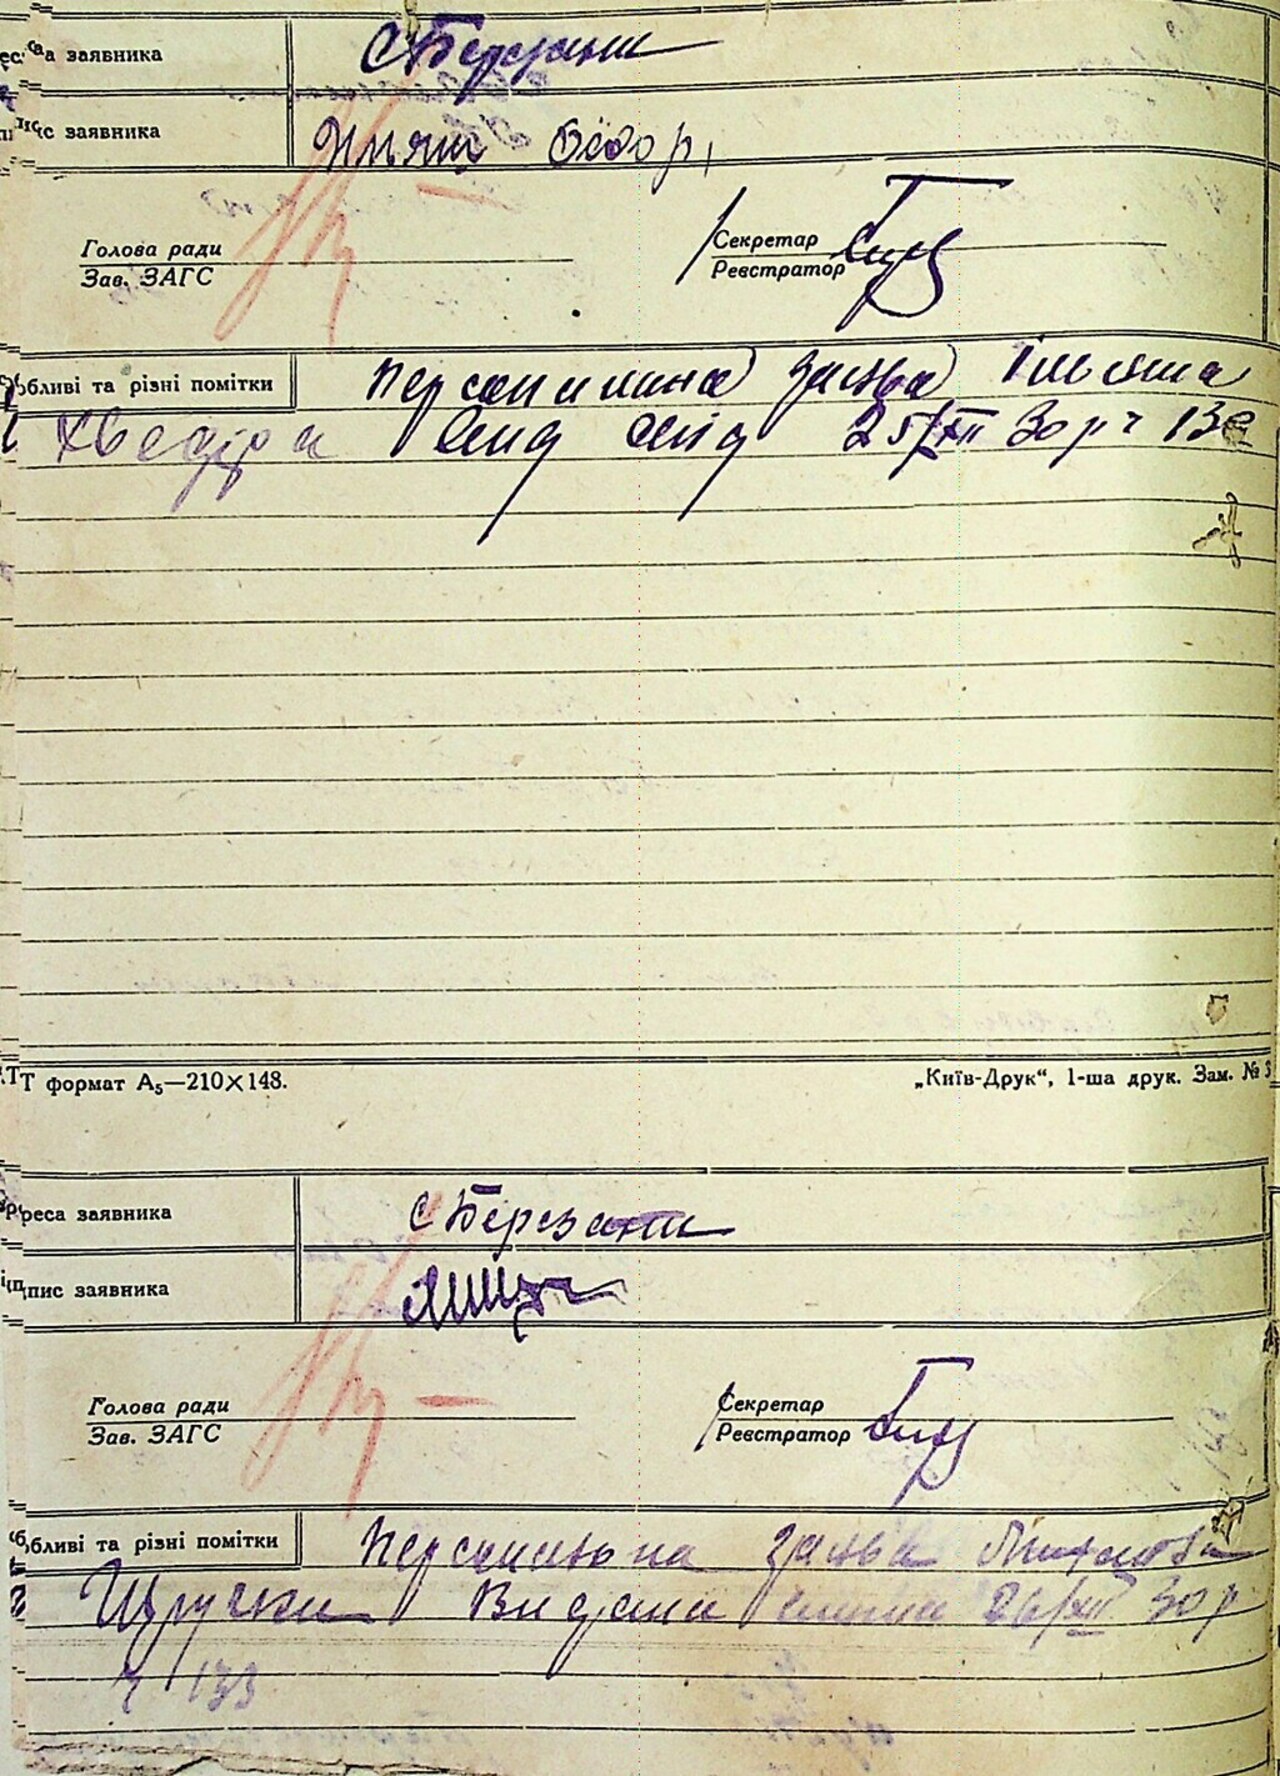 а заявника С Березани
с заявника Ильяш Фёдор,
Голова ради
Зав. ЗАГС
Секретар
Реєстратор
обливі та різні помітки Персональна заява Ільяша
Хведора 25/XII 30 р ч 132
Т формат А₅—210×148.
„Київ-Друк“, 1-ша друк. Зам. № 3
реса заявника С Березани
пис заявника
Голова ради
Зав. ЗАГС
Секретар
Реєстратор
бливі та різні помітки Персональна заява
Видана 26/XII 30 р
ч 133